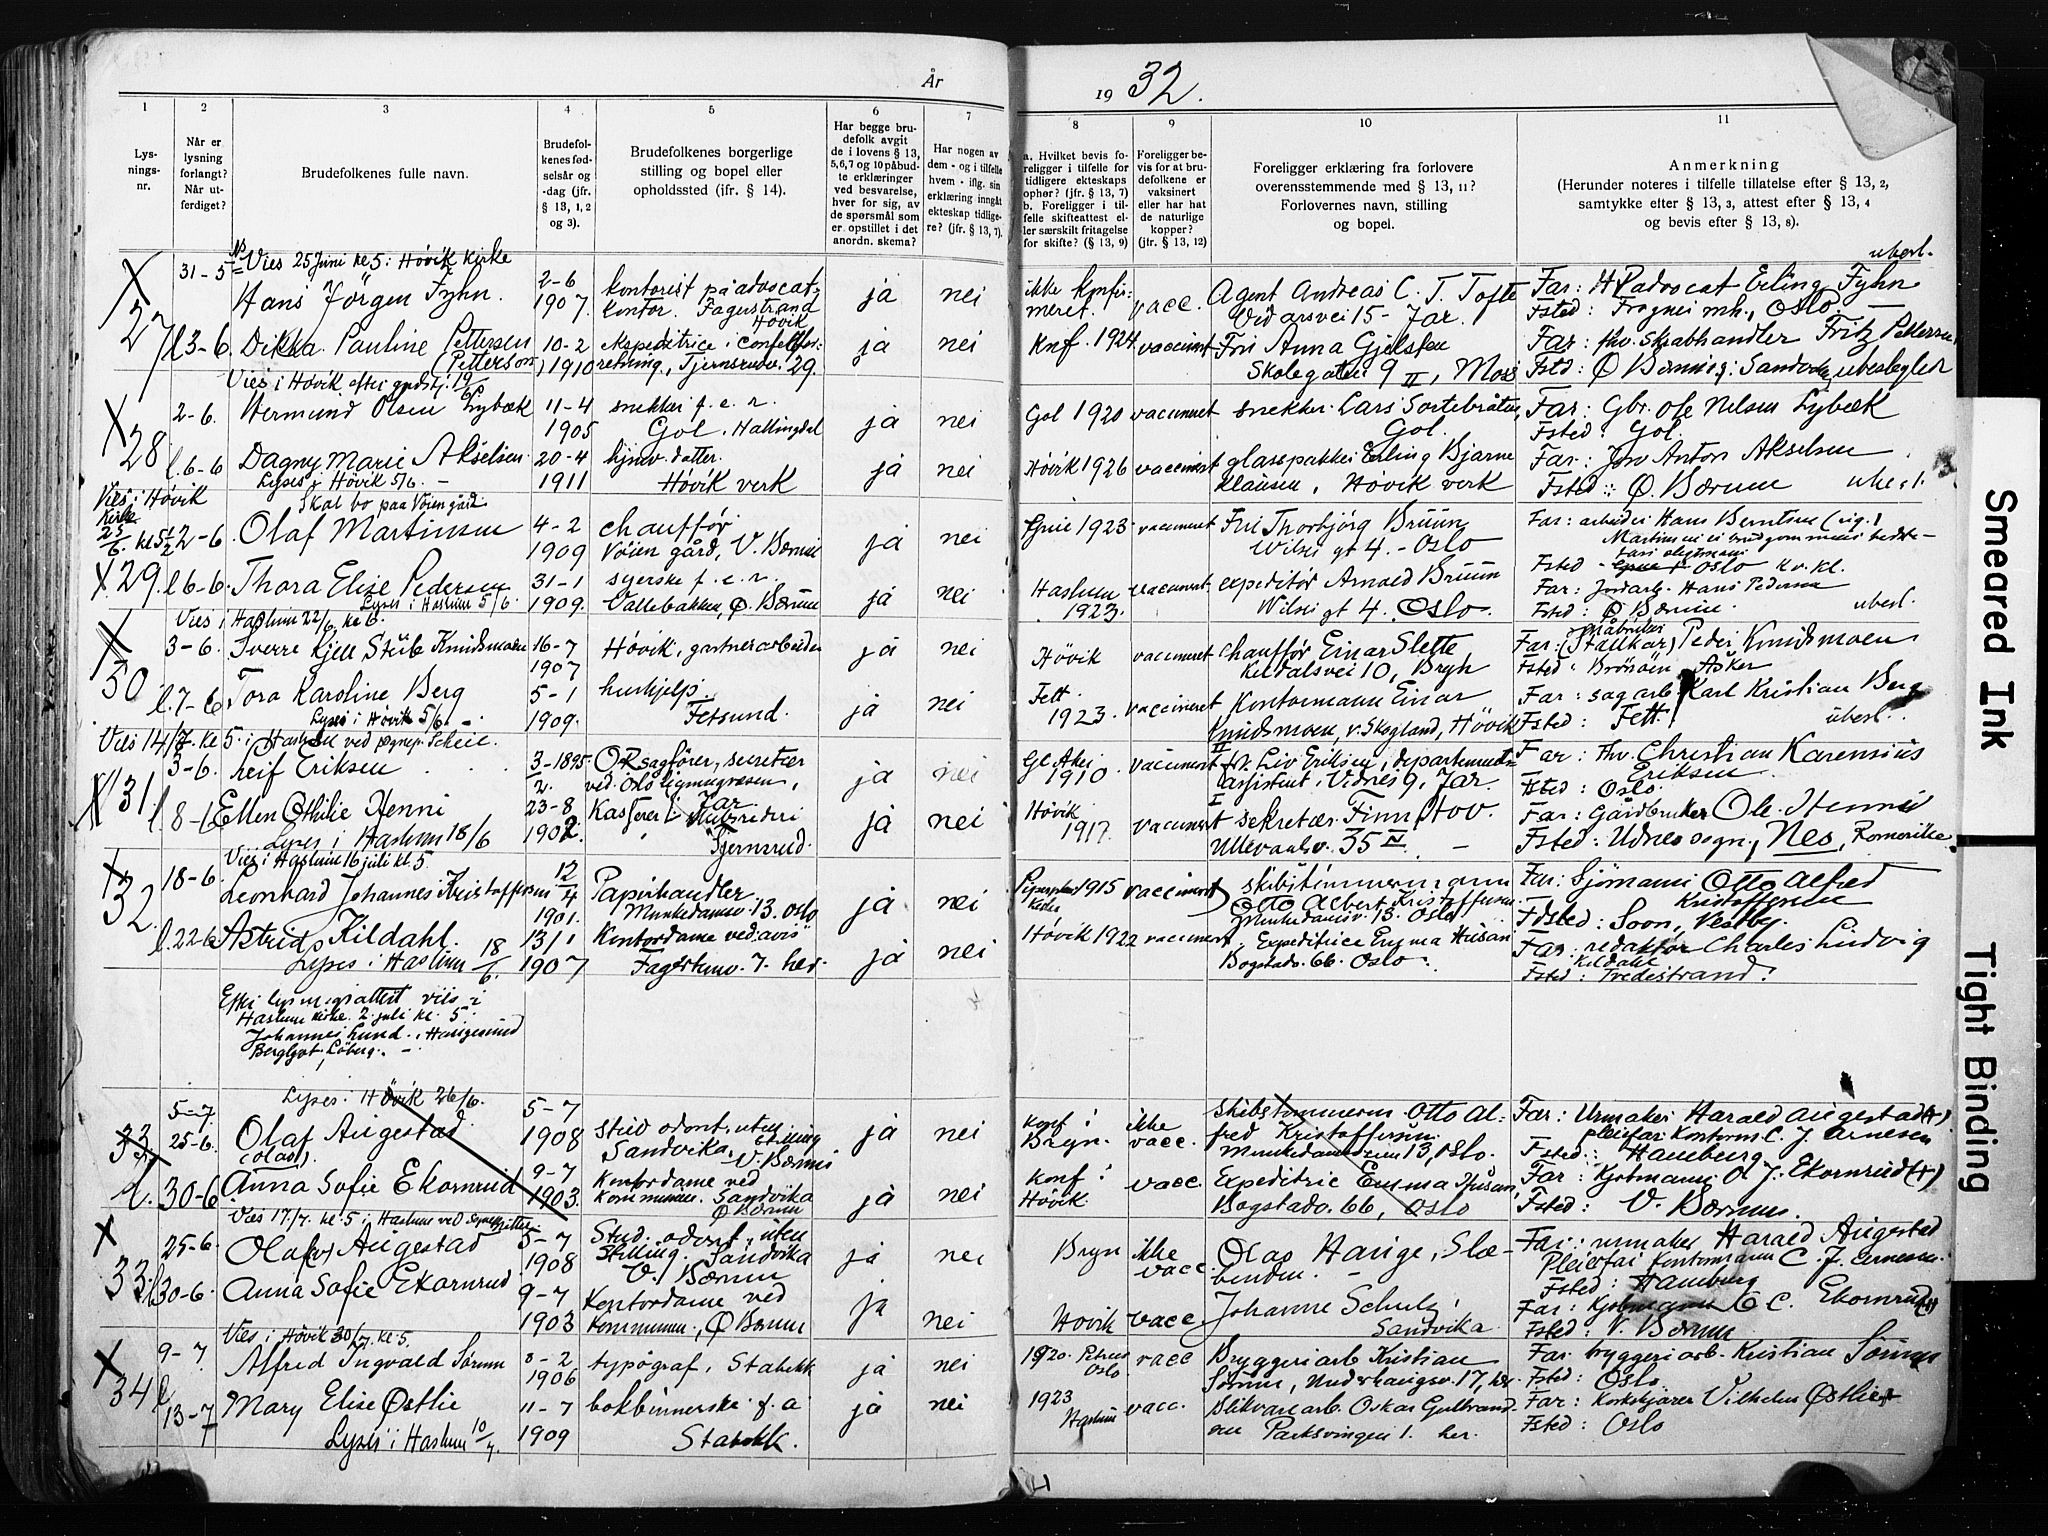 År
19 32.
1
2
3
4
5
6
7
8
9
10
11
Lys-
nings-
nr.
Når er
lysning
forlangt?
Når ut-
ferdiget?
Brudefolkenes fulle navn.
Brudefol-
kenes fød-
selsår og
-dag (jfr.
§ 13, 1, 2
og 3).
Brudefolkenes borgerlige
stilling og bopel eller
opholdssted (jfr. § 14).
Har begge bru-
defolk avgit
de i lovens § 13,
5, 6, 7 og 10 påbud-
te erklæringer
ved besvarelse,
hver for sig, av
de spørsmål som
er opstillet i det
anordn. skema?
Har nogen av
dem - og i tilfelle
hvem - iflg. sin
erklæring inngått
ekteskap tidlige-
re? (jfr. § 13, 7).
a. Hvilket bevis fo-
religger i tilfelle for
tidligere ekteskaps
ophør? (jfr. § 13, 7)
b. Foreligger i til-
felle skifteattest el-
ler særskilt fritagelse
for skifte? (§ 13, 9)
Foreligger be-
vis for at bru-
defolkene er
vaksinert
eller har hat
de naturlige
kopper?
(jfr. § 13, 12)
Foreligger erklæring fra forlovere
overensstemmende med § 13, 11?
Forlovernes navn, stilling
og bopel.
Anmerkning
(Herunder noteres i tilfelle tillatelse efter § 13, 2,
samtykke efter § 13, 3, attest efter § 13, 4
og bevis efter § 13, 8).
Vies 25 Juni kl 5 i Høvik kirke
27
31-5
Hans Jörgen Fyhn.
2-6
1907.
kontorist på advocat-
kontor. Fagerstrand
Høvik
ja
nei
ikke konfir-
meret.
vacc.
Agent Andreas C. T. Tofte
Vidarsvei 15 - Jar.
uberl.
Far: H.R. advocat Erling Fyhn
Fsted: Frogner mh., Oslo
l 3-6.
Dikka Pauline Pettersen
(Petterson)
10-2
1910
ekspeditrice i
retning, Tjernsrudv. 29.
ja
nei
Knf. 1924
vaccinert
Frk Anna Gjelsten
Skolegaten 9 II, Moss
Far: fhv. Skabhandler Fritz Pettersen
Fsted: Ø Bærum, Sandvika
Vies i Høvik efter gudstj. 19/6
28
2-6.
Hermund Olsen Lybæk
11-4
1905
snekker f.e.r.
Gol, Hallingdal
ja
nei
Gol 1920
vaccineret
snekker Lars Sortebråten,
Gol.
Far: Gbr. Ole Nelsen Lybæk
Fsted: Gol.
l. 6-6
Dagny Marie Akselsen
20-4
1911
hjmv. datter.
Høvik verk
ja
nei
Høvik 1926
vaccinert
glasspakker Erling Bjarne
Klausen, Høvik verk
Far: Anton Akselsen
Fsted: Ø. Bærum
Lyses i Høvik 5/6.
Vies i Høvik
kirke
25/6. kl 5 1/2
Skal bo paa Vøien gård
29.
2-6
Olaf Martinsen
4-2
1909
chauffør
Vøien gård, V. Bærum
ja
nei
1923
vaccinert
Frk Thorbjørg Bruun
Wilses gt 4. - Oslo
Far: arbeider Hans Berntsen
Fsted - Oslo
l 6-6.
Thora Elise Pedersen
31-1
1909.
syerske f.e.r.
Vallerbakken, Ø. Bærum
ja
nei
Haslum
1923.
vaccinert
expeditør Arnold Bruun
Wilses gt 4. Oslo.
Far: Jordarb. Hans Pedersen
Fsted: Ø Bærum.
uberl.
Lyses i Haslum 5/6.
Vies i Haslum 22/6. kl 6.
30
3-6.
Sverre Kjell Stub Knudsmoen
16-7
1907
Høvik, gartnerarbeider
ja
nei
Høvik
vaccineret
chauffør Einar Slette
Kildalsvei 10, Bryn
Far: (Stallkar) Peder Knudsmoen
Fsted: Brønøen, Asker
l. 7-6.
Tora Karoline Berg
5-1
1909.
hushjelp.
Fetsund.
ja
nei
Fett
1923.
vaccineret
Kontormann Einar
Knudsmoen, v. Skogland, Høvik
Far: sagarb. Karl Kristian Berg
Fsted: Fett.
uberl.
Lyses i Høvik 5/6.
Vies 14/7. kl 5. i Haslum ved sognepr. Scheie.
31
3-6.
Leif Eriksen
3-1895.
2.
O.R. sagfører, secretær
ved Oslo ligningsvesen,
Jar.
ja
nei
Gl. Aker
1910.
vaccinert
II
frk. Liv Eriksen, departements-
assistent, Vidnes 9, Jar.
Far: fhv. Christian Karenius
Eriksen
Fsted: Oslo.
l. 8-6
Ellen Othilie Henni
23-8
1902.
Kasserer i Skibsrederi
Tjernsrud.
ja
nei
Høvik
1917.
vaccinert
I
sekretær Finn Hov.
Ullevaalsv. 35 IV
Far: Gårdbruker Ole Henni
Fsted: Udnes sogn, Nes, Romerike.
Lyses i Haslum 18/6
Vies i Haslum 16 juli kl. 5
32
18-6.
Leonhard Johannes Kristoffersen
12/4
1901.
Papirhandler
Munkedamsv. 13. Oslo
ja
nei
1915
vaccinert
skibstimmermann
Otto Albert Kristoffersen
Munkedamsv. 13. Oslo
Far: Sjömann Otto Alfred
Kristoffersen
Fdsted: Soon, Vestby.
l. 22-6
Astrid Kildahl.
13/1
1907
Kontordame ved avis
7. her.
ja
nei
Høvik 1922
vaccinert.
Expeditrice Emma Husan
Bogstadv. 66. Oslo.
Far: redaktør Charles Ludvig
Kildahl
Fsted: Tvedestrand.
Lyses i Haslum 18/6.
Efter lysningsattest vies i
Haslum kirke 2. juli kl. 5.
Johannes Lund, Haugesund
Bergljot Löberg.
Lyses i Høvik 26/6.
33
5-7
25-6.
Olaf Augestad
(Olav).
5-7
1908
stud odont, uten
stilling
Sandvika, V. Bærum
ja
nei
Konf i
Bryn.
ikke
vacc.
Skibstømmerm. Otto Al-
fred Kristoffersen
Munkedamsveien 13, Oslo.
Far: Urmaker Harald Augestad (+)
pleiefar Kontorm C. J. Arnesen
Fsted: Hamburg
l. 30-6
Anna Sofie Ekornrud
9-7
1903.
Kontordame ved
kommunen. Sandvika
Ø Bærum
ja
nei
Konf i
Høvik.
vacc.
Expeditric Emma Husan,
Bogstadv. 66, Oslo
Far: Kjøbmann O J. Ekornrud (+)
Fsted: V. Bærum.
Vies 17/7. kl. 5 i Haslum ved
33.
25-6.
Olaf(v) Augestad
5-7
1908
Stud. odont, uten
Stilling. Sandvika
V. Bærum
ja
nei
Bryn
ikke
vacc.
Olas Hauge, Slæ-
benden.
Far: urmaker Harald Augestad
Pleiefar Kontormann C. J. Arnesen
Fsted: Hamburg
l 30-6.
Anna Sofie Ekornrud
9-7
1903
Kontordame ved
kommunen, Ø Bærum
ja
nei
Høvik
vacc
Johanne Schulz,
Sandvika.
Far: Kjøbmann C. Ekornrud (+)
Fsted: V. Bærum
Vies i Høvik 30/7. kl. 5.
34
9-7.
Alfred Ingvald Sørum
8-2
1906
typograf, Stabekk
ja
nei
1920. Petrus
Oslo.
vacc
Bryggeriarb Kristian
Sørum, Underhaugsv. 17, her.
Far: bryggeriarb. Kristian Sørum
Fsted: Oslo.
l
13-7
Mary Elise Østlie
11-7
1909
bokbinnerske f. a
Stabekk.
ja
nei
1923
Haslum
vacc.
Blikvarearb. Oskar Gulbrand-
sen Parksvingen 1. her.
Far: Korkskjærer Vilhelm Østlie
Fsted: Oslo
Lyses i Haslum 10/7.
Smeared Ink
Tight Binding